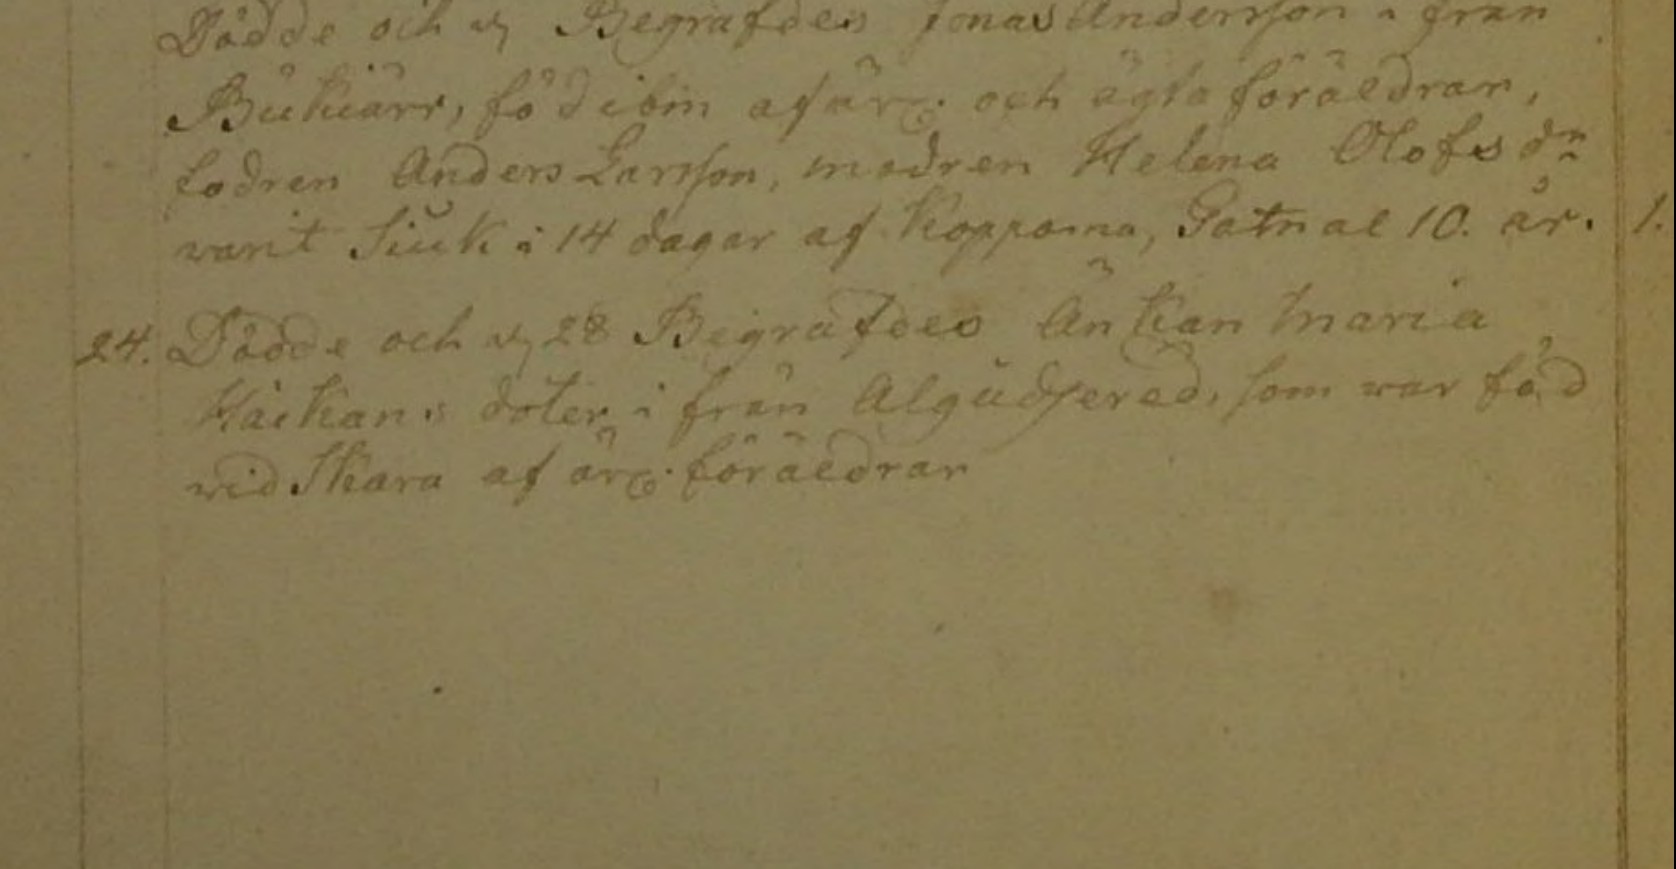 Dödde och d Begrafdes Jonas Andersson i från
Bukiärr, föd ibm af ärl. och ägta föräldrar,
fadren Anders Larsson, modren Helena Olofs dr
warit Siuk i 14 dagar af Kopporna, Gamal 10. år. 1.
24. Dödde och d 28 Begrafdes Änkan Maria
Håkans doter i från Algudsered, som war föd
wid Skara af ärl. föräldrar